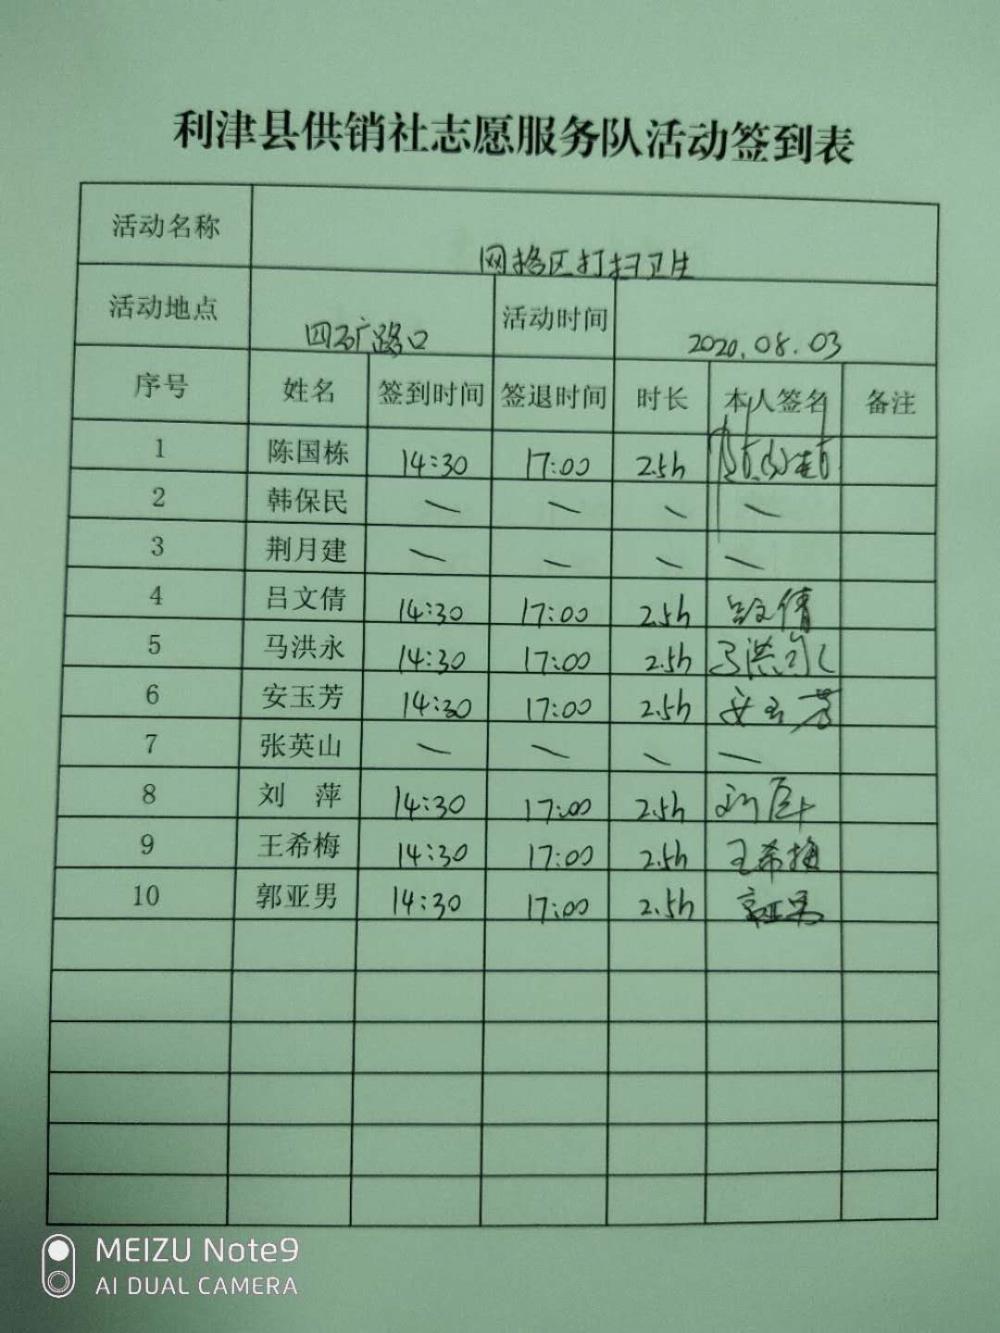 利津县供销社志愿服务队活动签到表
活动名称 网格区打扫卫生
活动地点 四矿路口 活动时间 2020.08.03
序号 姓名 签到时间 签退时间 时长 本人签名 备注
1 陈国栋 14:30 17:00 2.5h 陈国栋
2 韩保民 — — — —
3 荆月建 — — — —
4 吕文倩 14:30 17:00 2.5h 吕文倩
5 马洪永 14:30 17:00 2.5h 马洪永
6 安玉芳 14:30 17:00 2.5h 安玉芳
7 张英山 — — — —
8 刘 萍 14:30 17:00 2.5h 刘萍
9 王希梅 14:30 17:00 2.5h 王希梅
10 郭亚男 14:30 17:00 2.5h 郭亚男
MEIZU Note9
AI DUAL CAMERA